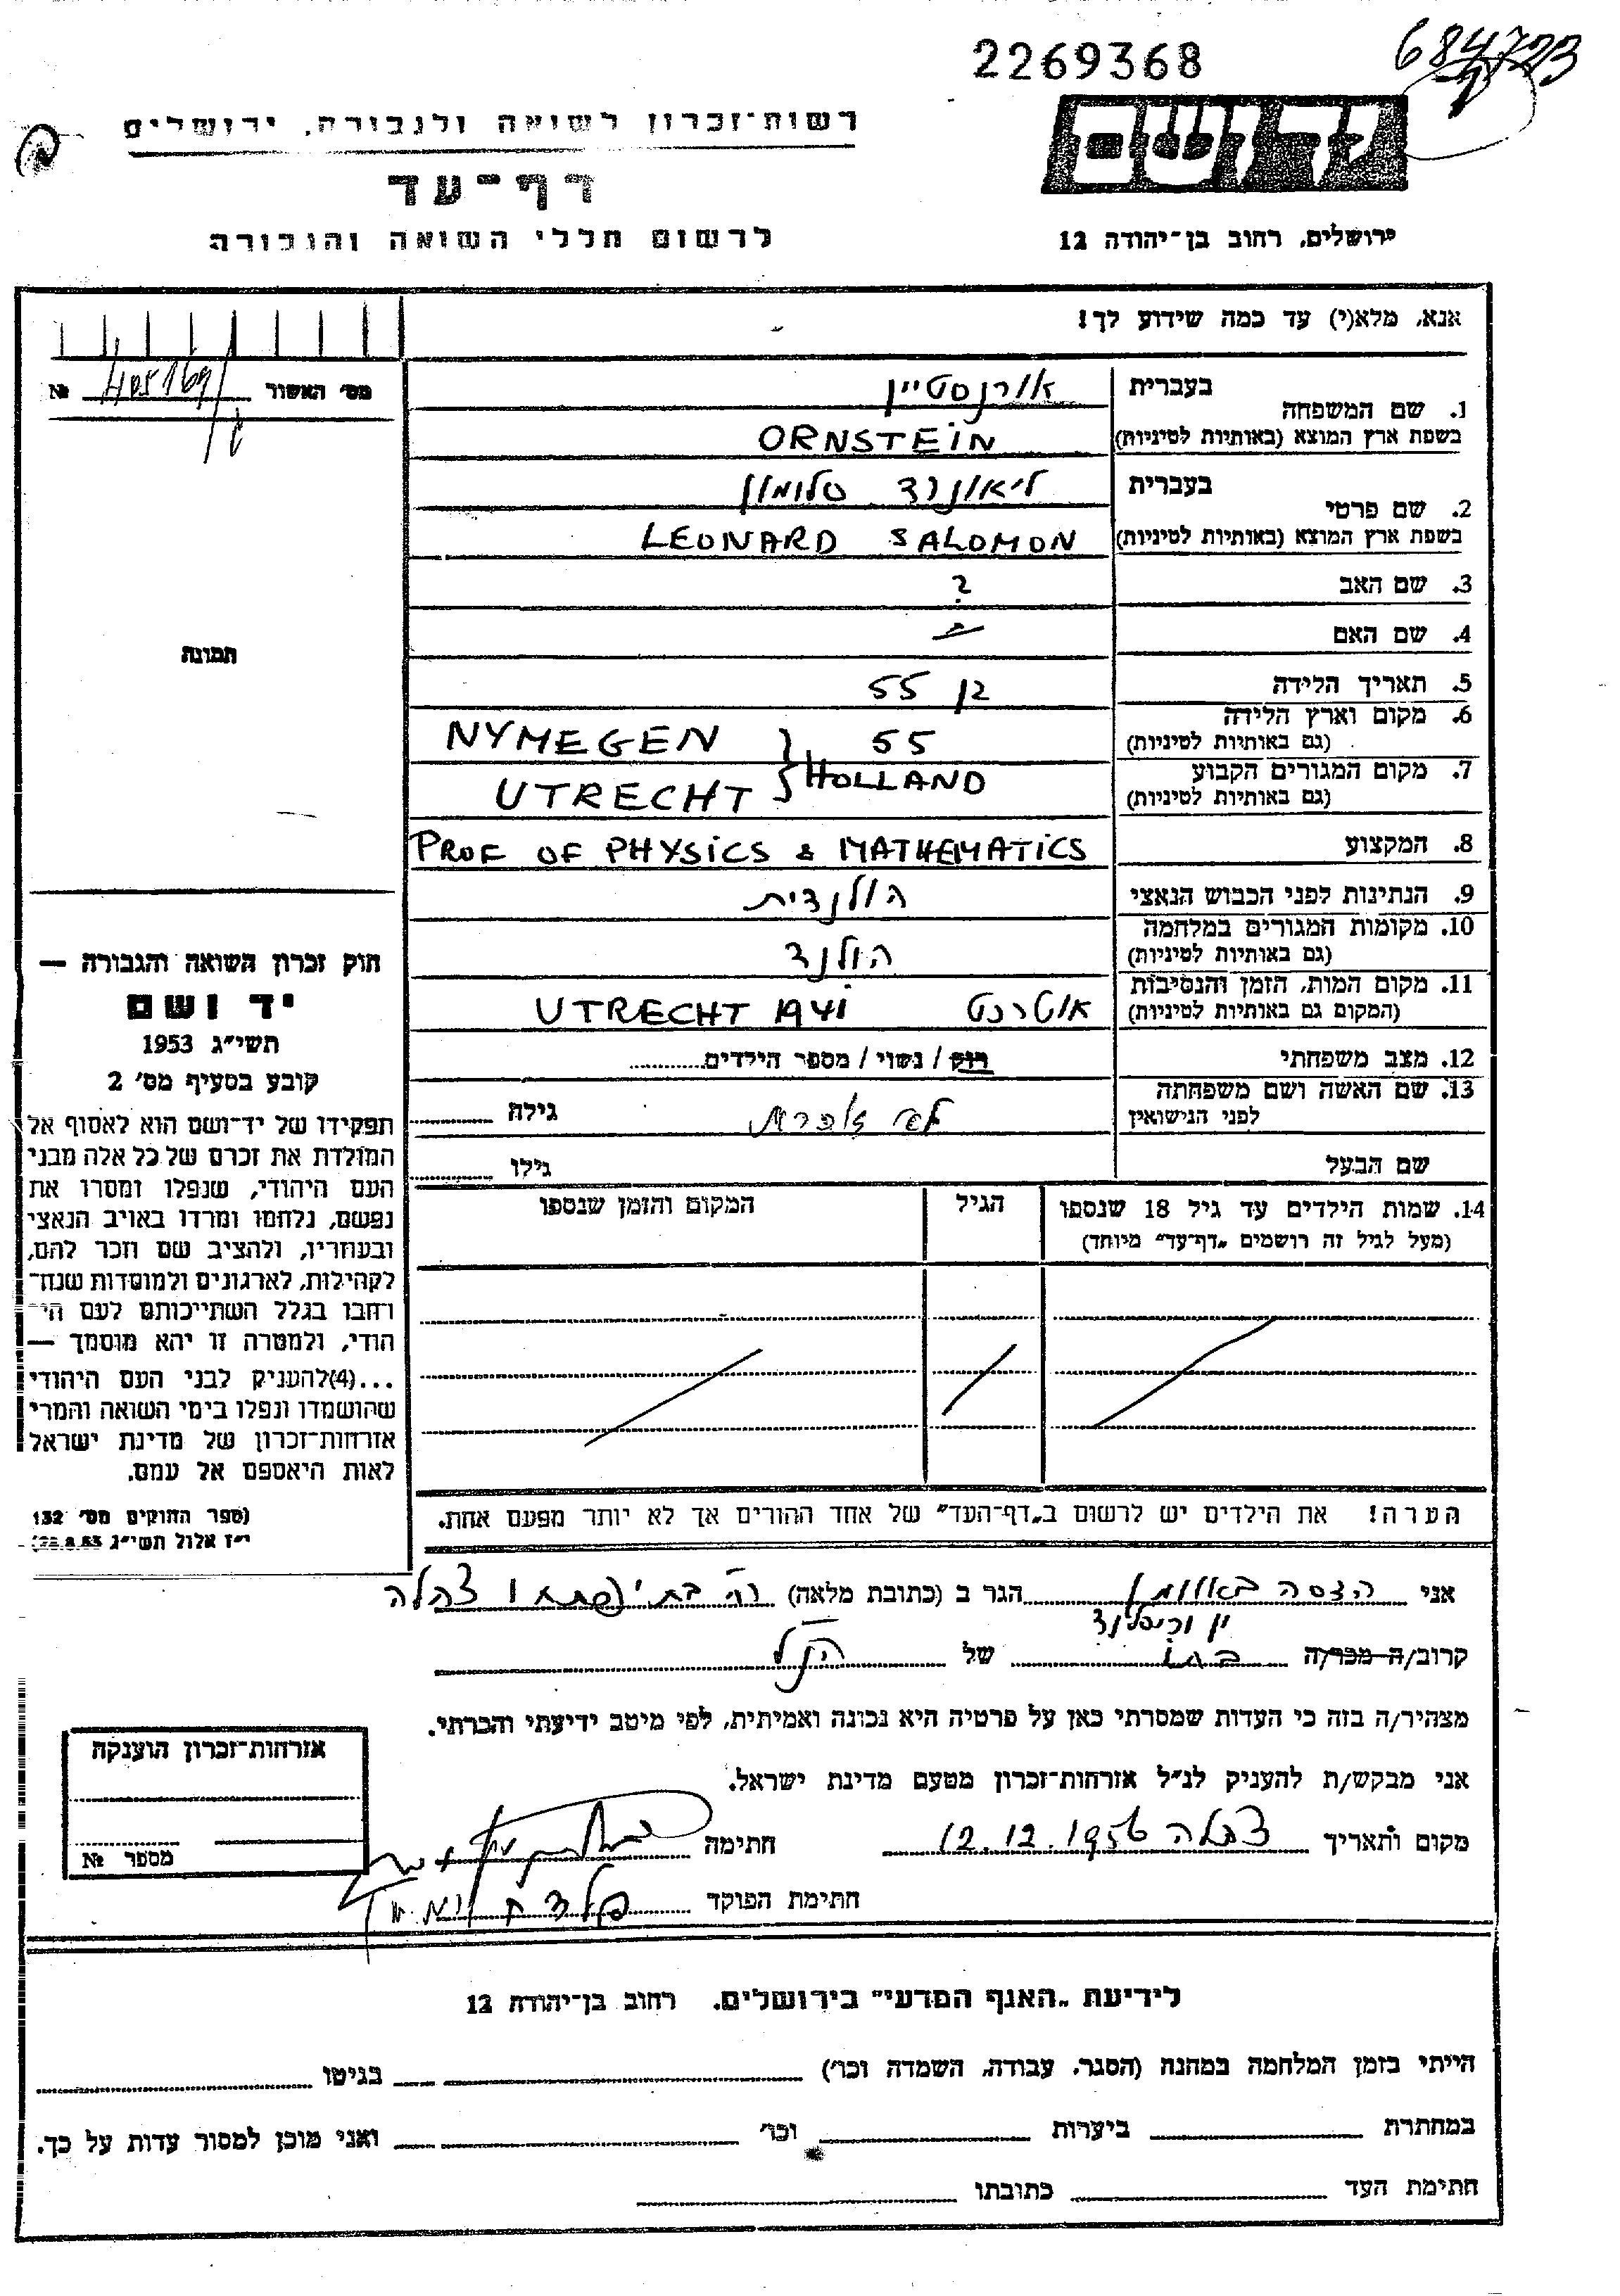 2269368
684723
רשות־זכרון לשואה ולגבורה, ירושלים
דף־עד
לרשום חללי השואה והגבורה
ידושם
ירושלים, רחוב בן־יהודה 12
אנא, מלא(י) עד כמה שידוע לך!
מס׳ האשור 405169 №
1. שם המשפחה
בעברית אורנסטיין
בשפת ארץ המוצא (באותיות לטיניות) ORNSTEIN
2. שם פרטי
בעברית ליאונרד סלומון
בשפת ארץ המוצא (באותיות לטיניות) LEONARD SALOMON
3. שם האב ?
4. שם האם
5. תאריך הלידה בן 55
6. מקום וארץ הלידה 55 NYMEGEN
(גם באותיות לטיניות)
HOLLAND
7. מקום המגורים הקבוע UTRECHT
(גם באותיות לטיניות)
8. המקצוע PROF OF PHYSICS & MATHEMATICS
9. הנתינות לפני הכבוש הנאצי הולנדית
10. מקומות המגורים במלחמה הולנד
(גם באותיות לטיניות)
11. מקום המות, הזמן והנסיבות אוטרכט UTRECHT 1941
(המקום גם באותיות לטיניות)
12. מצב משפחתי רוק / נשוי / מספר הילדים
13. שם האשה ושם משפחתה
לפני הנישואין
גילה
שם הבעל גילו
14. שמות הילדים עד גיל 18 שנספו
(מעל לגיל זה רושמים „דף־עד״ מיוחד)
הגיל
המקום והזמן שנספו
הערה! את הילדים יש לרשום ב„דף־העד״ של אחד ההורים אך לא יותר מפעם אחת.
תמונה
חוק זכרון השואה והגבורה —
יד ושם
תשי״ג 1953
קובע בסעיף מס׳ 2
תפקידו של יד־ושם הוא לאסוף אל
המולדת את זכרם של כל אלה מבני
העם היהודי, שנפלו ומסרו את
נפשם, נלחמו ומרדו באויב הנאצי
ובעוזריו, ולהציב שם וזכר להם,
לקהילות, לארגונים ולמוסדות שנח־
רבו בגלל השתייכותם לעם הי־
הודי, ולמטרה זו יהא מוסמך —
...(4) להעניק לבני העם היהודי
שהושמדו ונפלו בימי השואה והמרי
אזרחות־זכרון של מדינת ישראל
לאות היאספם אל עמם.
(ספר החוקים מס׳ 132
י״ז אלול תשי״ג 28.8.53)
אני הדסה הגר ב (כתובת מלאה) צהלה
קרוב/ה מכר/ה של הנ״ל
מצהיר/ה בזה כי העדות שמסרתי כאן על פרטיה היא נכונה ואמיתית, לפי מיטב ידיעתי והכרתי.
אני מבקש/ת להעניק לנ״ל אזרחות־זכרון מטעם מדינת ישראל.
מקום ותאריך צהלה 12.12.1956 חתימה
חתימת הפוקד
אזרחות־זכרון הוענקה
מספר №
לידיעת „האגף המדעי״ בירושלים. רחוב בן־יהודה 12
הייתי בזמן המלחמה במחנה (הסגר, עבודה, השמדה וכו׳) בגיטו
במחתרת ביערות וכו׳ ואני מוכן למסור עדות על כך.
חתימת העד כתובתו